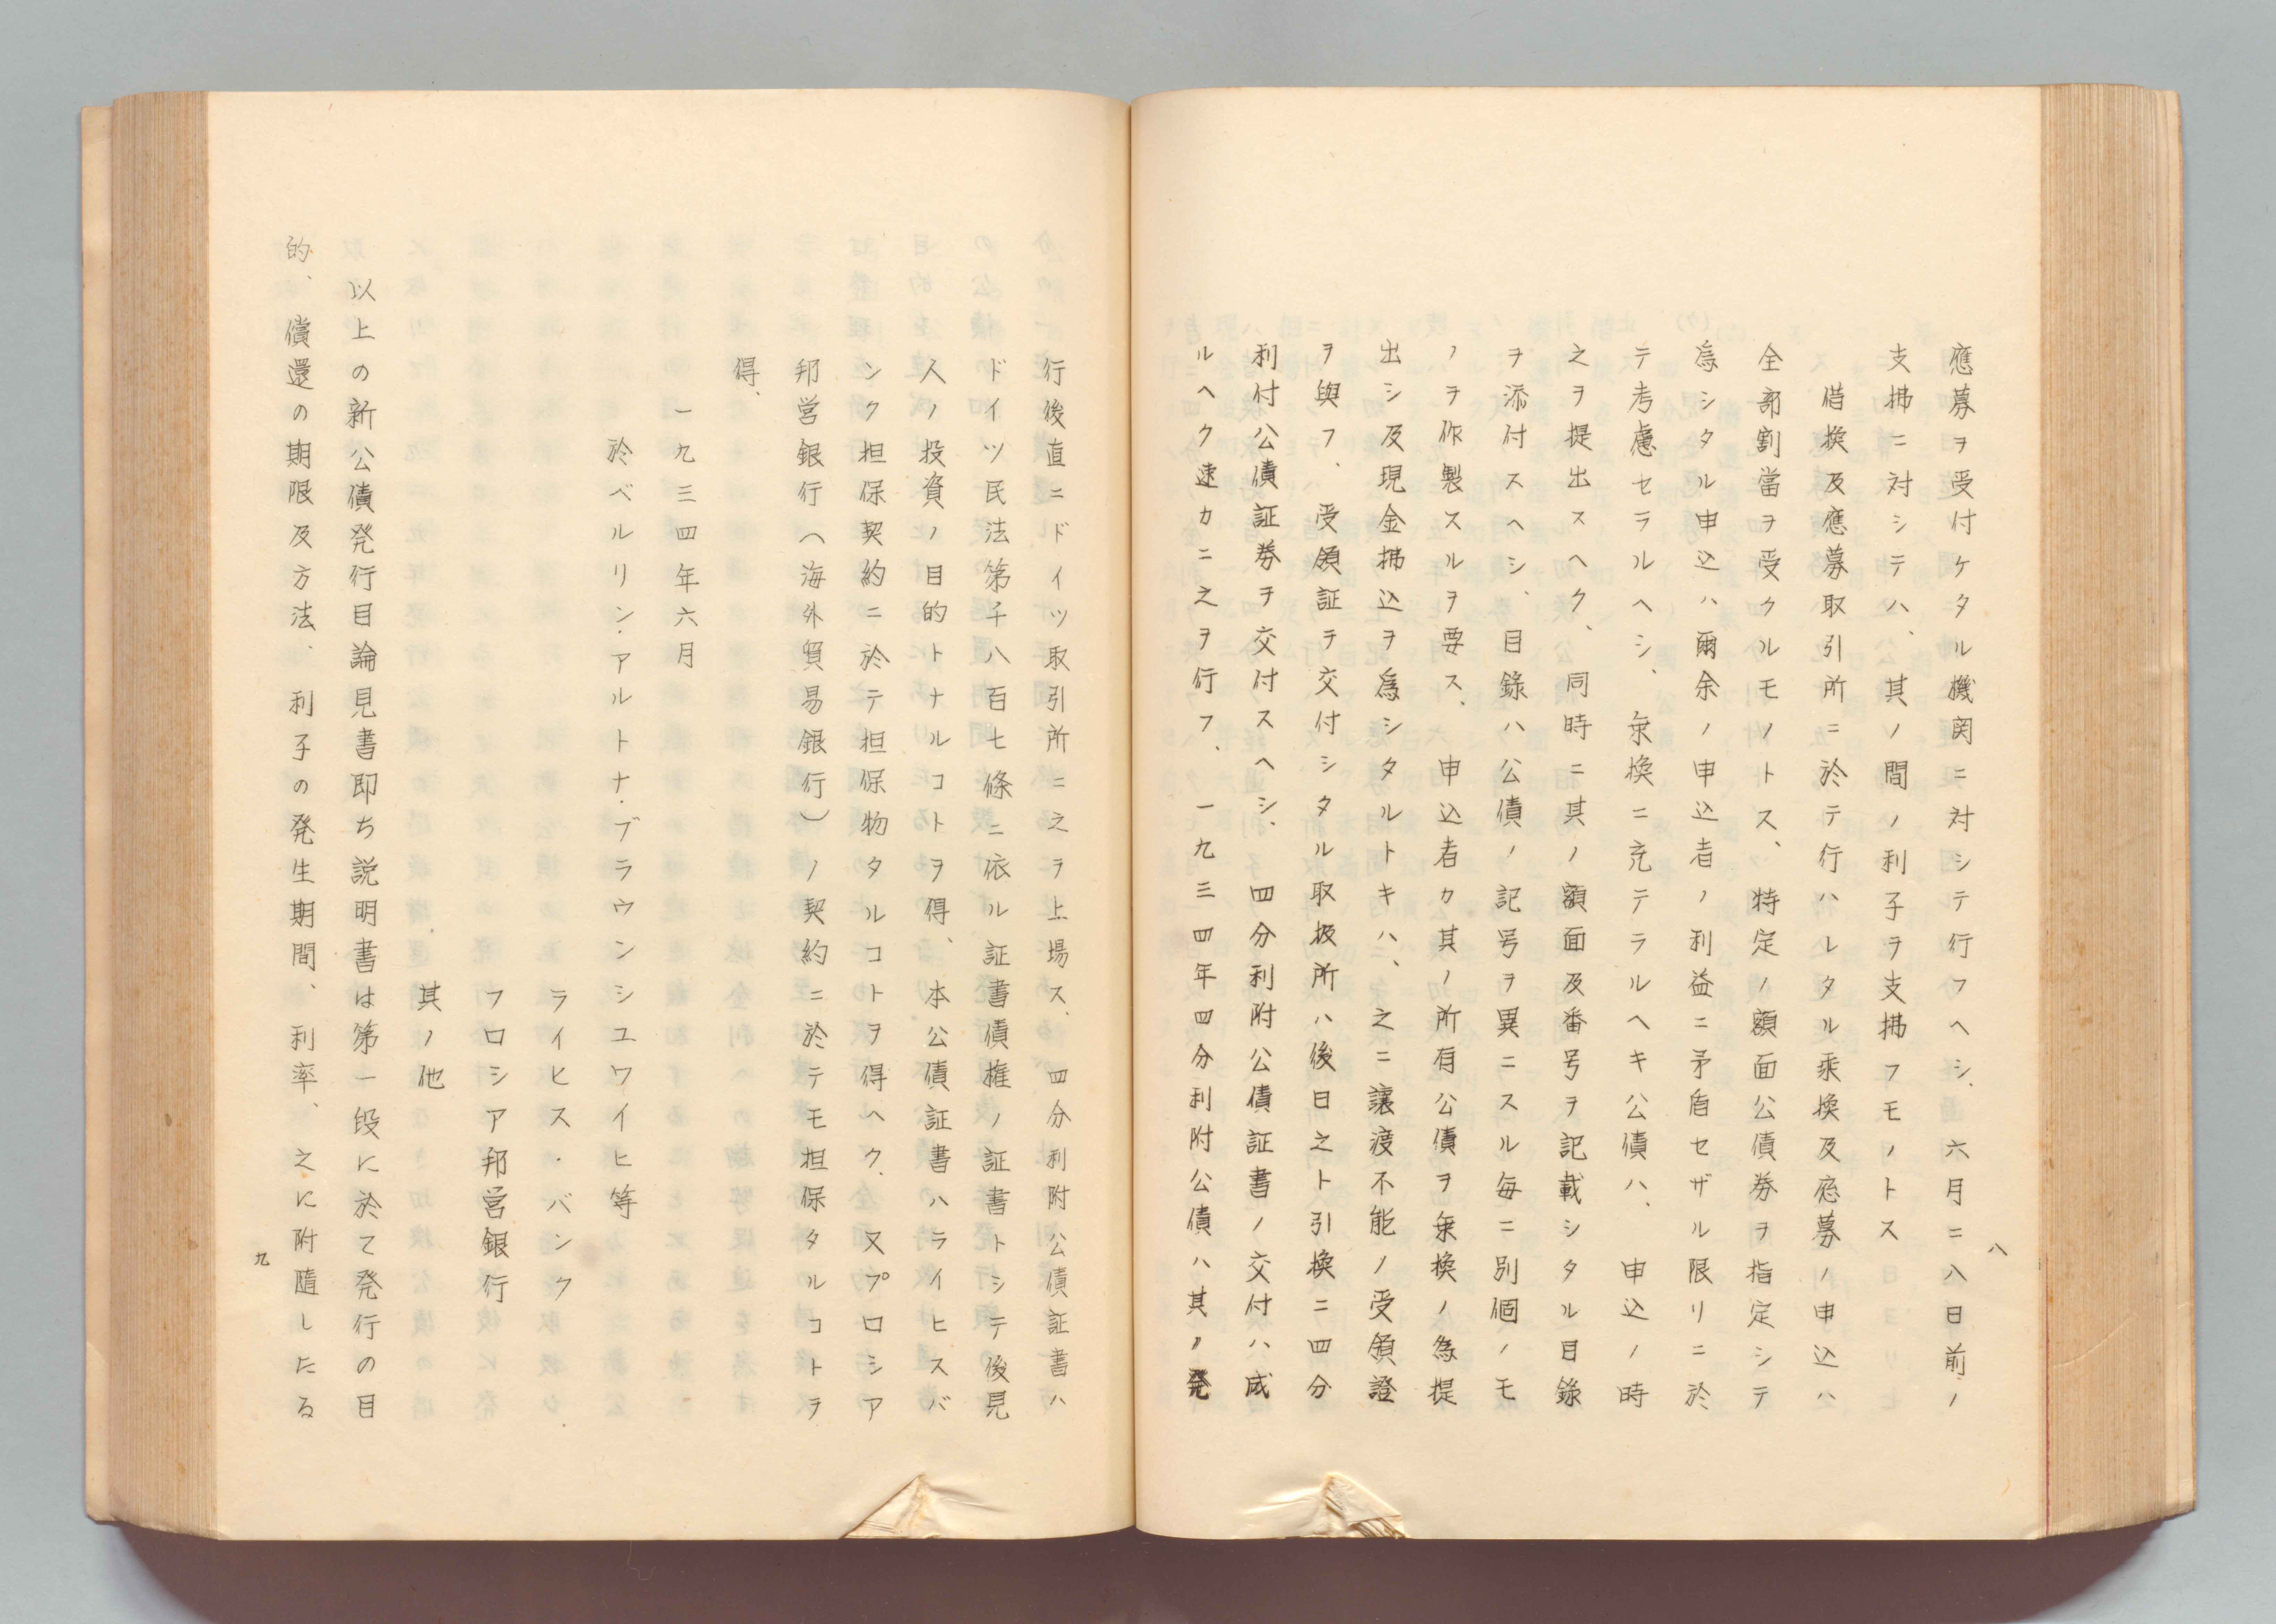 八
應募ヲ受付ケタル機関ニ対シテ行フヘシ、六月二八日前ノ
支拂ニ対シテハ、其ノ間ノ利子ヲ支拂フモノトス
借換及應募取引所ニ於テ行ハレタル乗換及应募ノ申込ハ
全部割當ヲ受クルモノトス、特定ノ額面公債券ヲ指定シテ
為シタル申込ハ爾余ノ申込者ノ利益ニ矛盾セザル限リニ於
テ考慮セラルヘシ、乗換ニ充テラルヘキ公債ハ、申込ノ時
之ヲ提出スヘク、同時ニ其ノ額面及番号ヲ記載シタル目錄
ヲ添付スヘシ、目錄ハ公債ノ記号ヲ異ニスル毎ニ別個ノモ
ノヲ作製スルヲ要ス、申込者カ其ノ所有公債ヲ乗換ノ為提
出シ及現金拂込ヲ為シタルトキハ、之ニ讓渡不能ノ受領證
ヲ與フ、受領証ヲ交付シタル取扱所ハ後日之ト引換ニ四分
利付公債証券ヲ交付スヘシ、四分利附公債証書ノ交付ハ成
ルヘク速カニ之ヲ行フ、一九三四年四分利附公債ハ其ノ発
行後直ニドイツ取引所ニ之ヲ上場ス、四分利附公債証書ハ
ドイツ民法第千八百七條ニ依ル証書債権ノ証書トシテ後見
人ノ投資ノ目的トナルコトヲ得、本公債証書ハライヒスバ
ンク担保契約ニ於テ担保物タルコトヲ得ヘク、又プロシア
邦営銀行（海外貿易銀行）ノ契約ニ於テモ担保タルコトヲ
得、
一九三四年六月
於ベルリン・アルトナ・ブラウンシユワイヒ等
ライヒス・バンク
フロシア邦営銀行
其ノ他
以上の新公債発行目論見書即ち説明書は第一段に於て発行の目
的、償還の期限及方法、利子の発生期間、利率、之に附隨したる
九